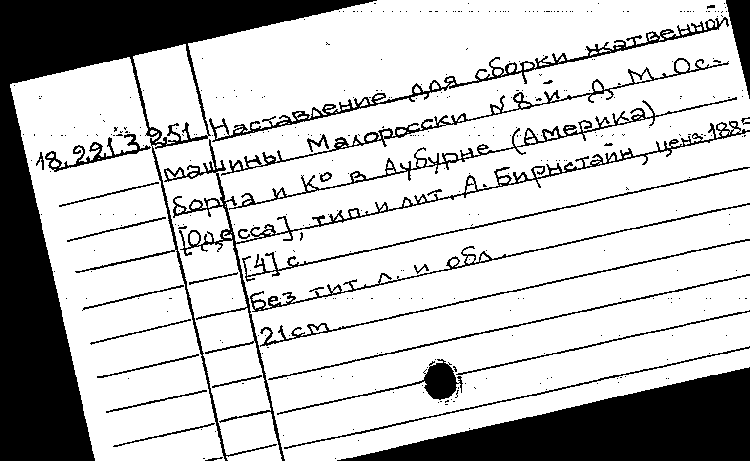 18.221.3.251 Наставление для сборки жатвенной
машины Малоросски № 8-й. Д. М. Ос-
борна и К° в Аубурне (Америка)
[Одесса], тип. и лит. А. Бирнстайн, ценз. 1885
[4] с.
Без тит. л. и обл.
21 cm